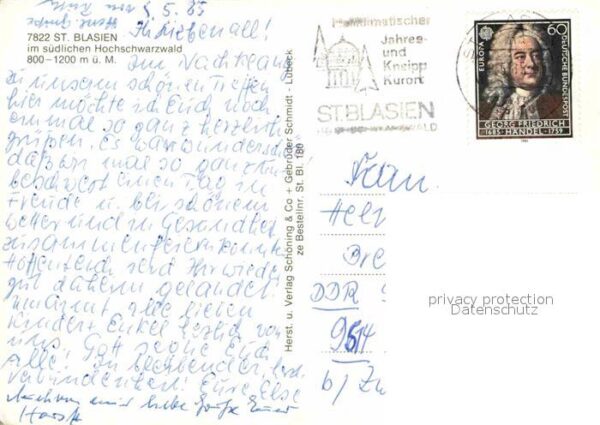 7822 ST. BLASIEN
im südlichen Hochschwarzwald
800-1200 m ü. M.
5.5.85
Ihr Lieben all!
zu unserem schönen Treffen
hier möchte ich Euch noch
einmal so ganz herzlich
grüßen. Es war wunderschön
daß wir mal so ganz
beschwert einen Tag in
Freude u. bei schönem
Wetter und in Gesundheit
zusammen feiern konnten
Hoffentlich seid Ihr wieder
gut daheim gelandet!
alle lieben
Kinder + Enkel herzlich von
uns! Gott segne Euch
Alle! In
Verbundenheit! Eure Else
Auch von mir liebe Grüße Euer
Horst
Herst. u. Verlag Schöning & Co + Gebrüder Schmidt - Lübeck
ze Bestellnr. St. Bl. 180
Heilklimatischer
Jahres-
und
Kneipp
Kurort
ST. BLASIEN
EUROPA
60
DEUTSCHE BUNDESPOST
GEORG FRIEDRICH
1685 HÄNDEL 1759
Frau
Hel
Bre
DDR
9514
b/ Zw
privacy protection
Datenschutz